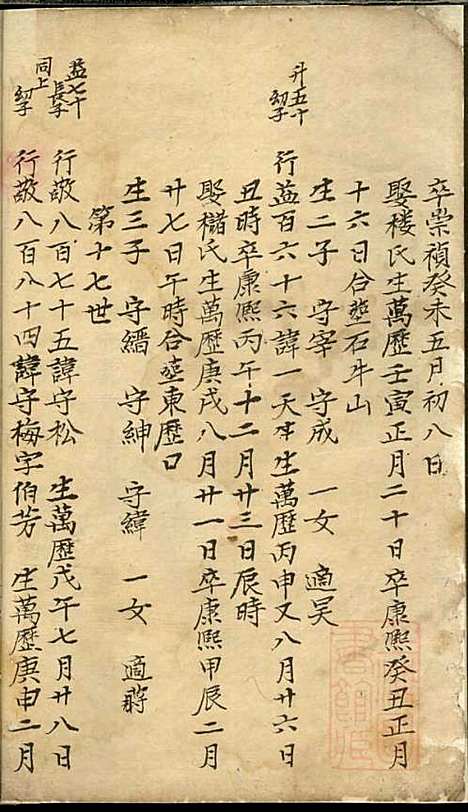 卒崇禎癸未五月初八日
娶楼氏生萬歷壬寅正月二十日卒康熙癸丑正月
十六日合塟石牛山
生二子　守宰　守成　一女　適吴
升五十
幼子
行益百六十六諱一天生萬歷丙申又八月廿六日
丑時卒康熙丙午十二月廿三日辰時
娶樀氏生萬歷庚戌八月廿一日卒康熙甲辰二月
廿七日午時合塟東歷口
生三子　守縉　守紳　守緯　一女　適蔣
第十七世
益七十
長子
行敬八百七十五諱守松　生萬歷戊午七月廿八日
同上
幼子
行敬八百八十四諱守梅字伯芳　生萬歷庚申二月